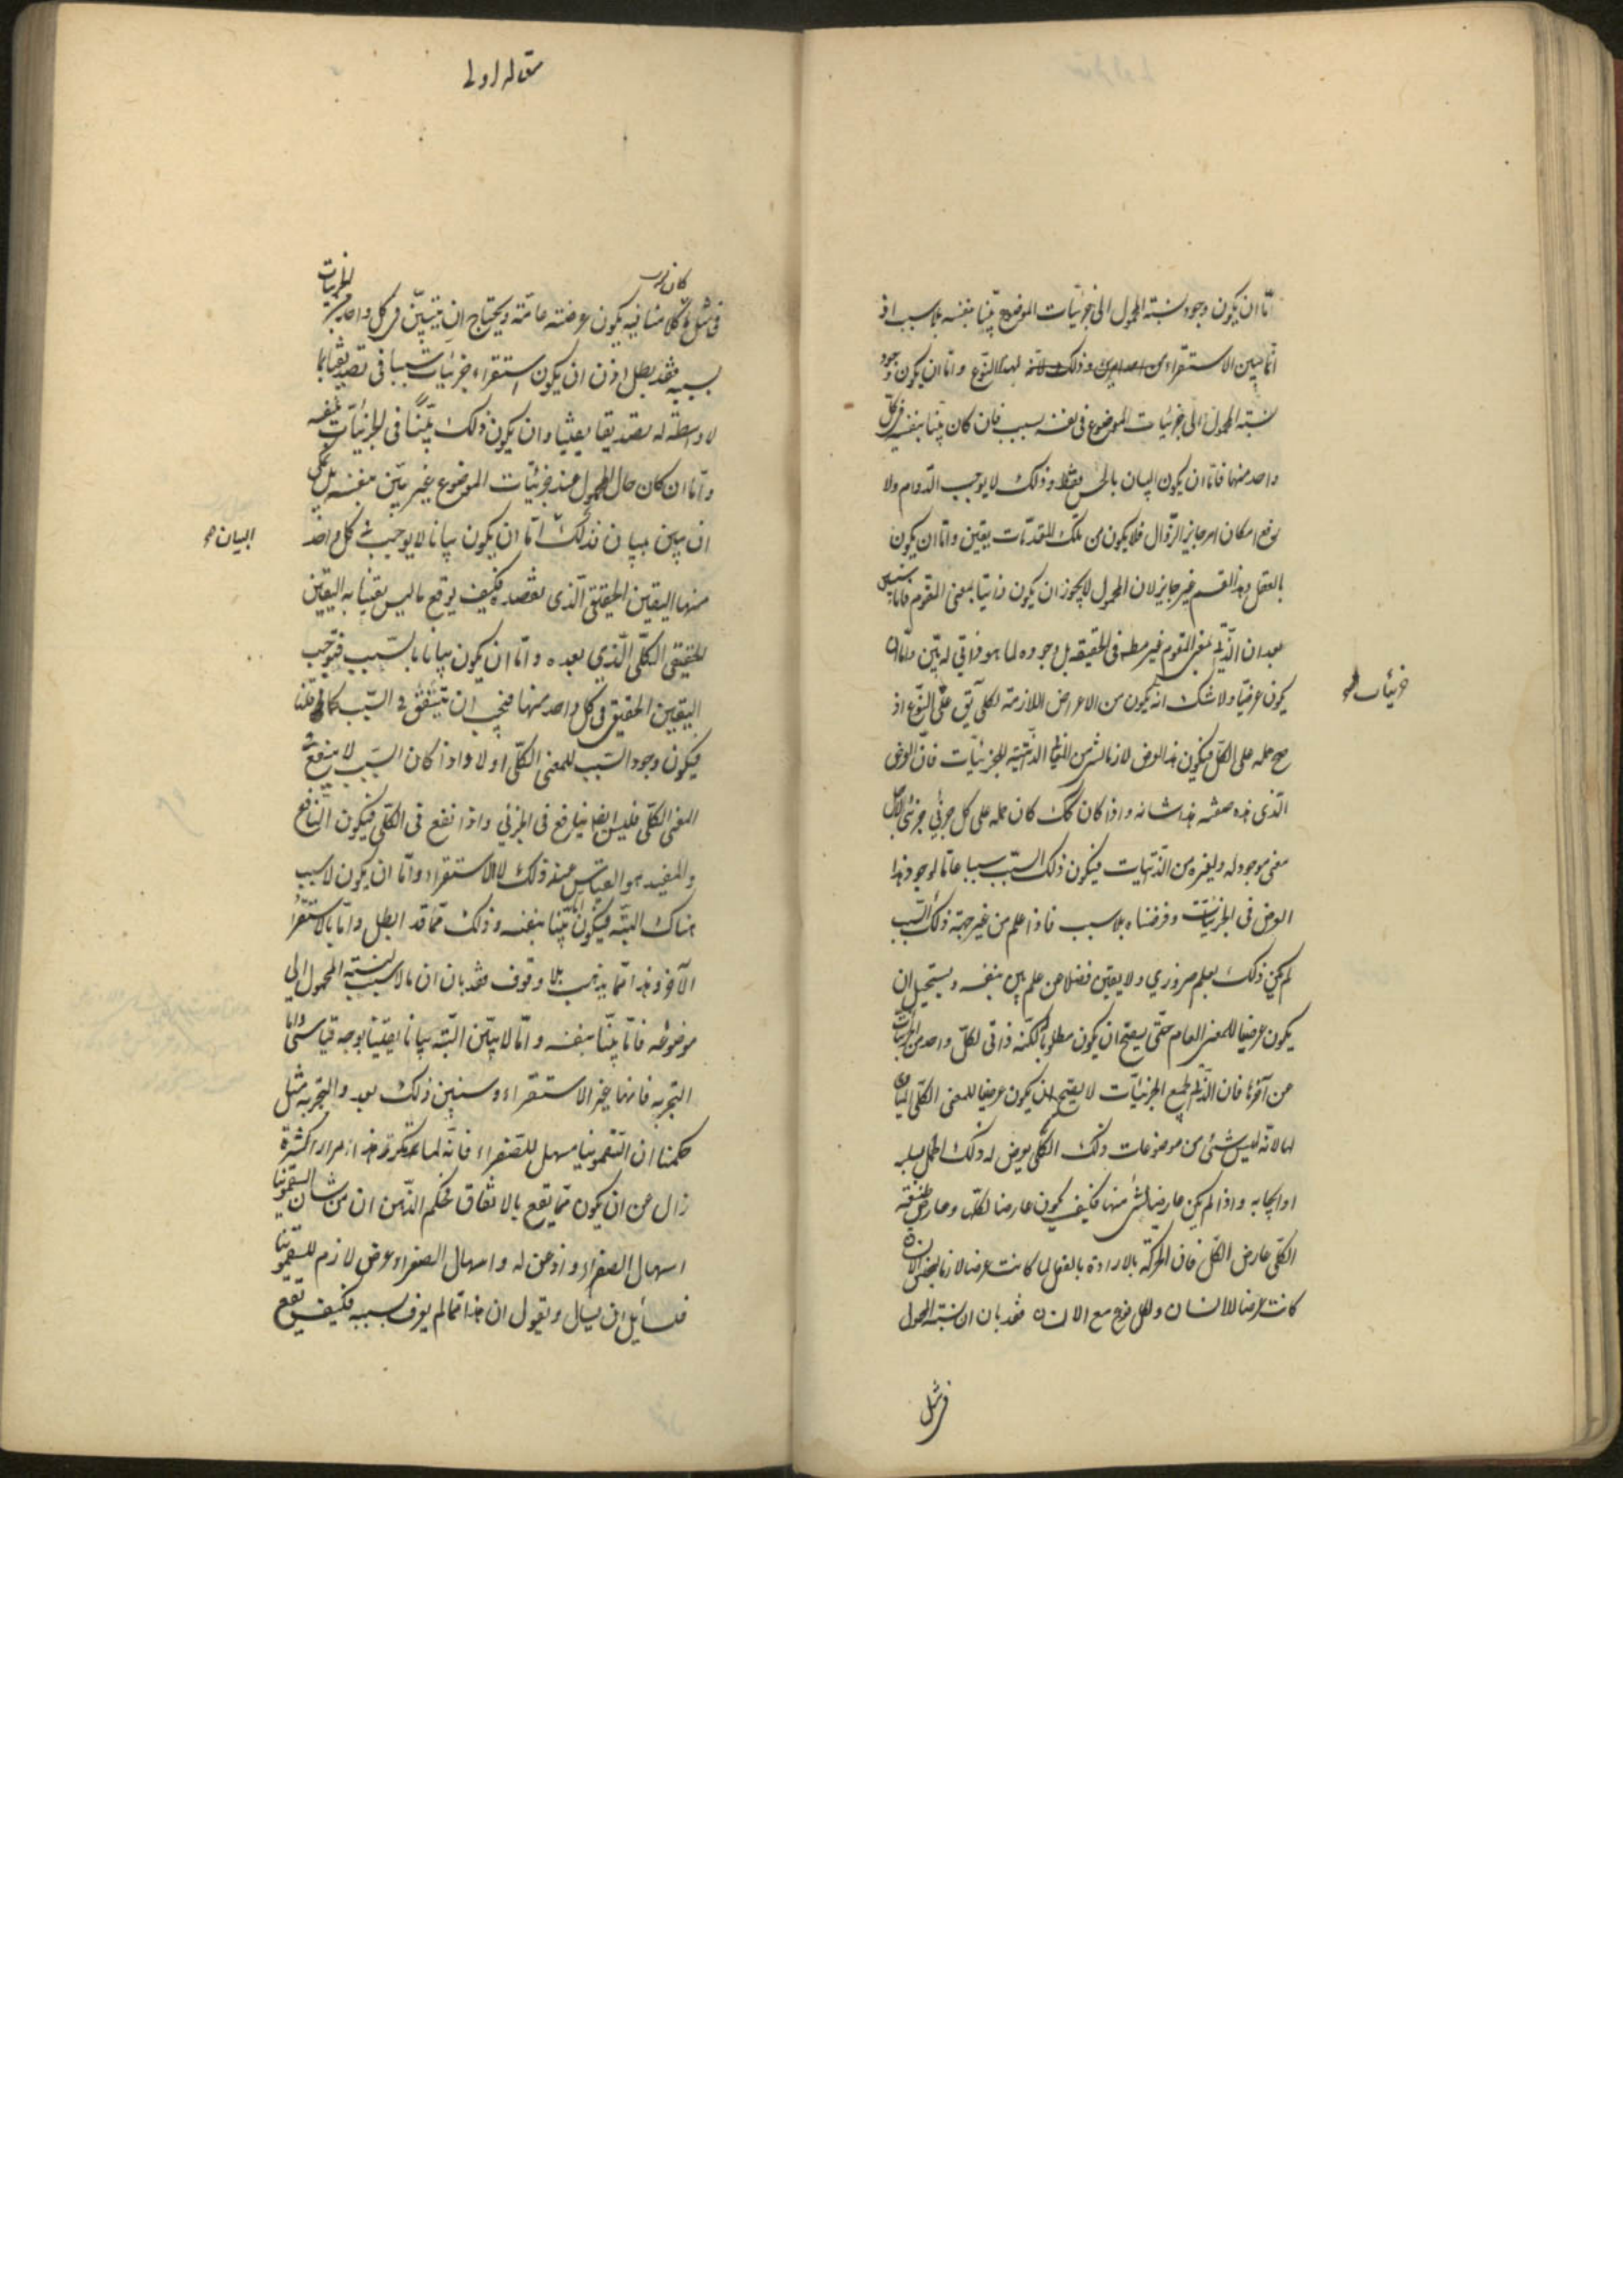 اما ان يكون وجود نسبة المحمول الى جزئيات الموضوع بينا بنفسه بلا سبب اذ
انما تبين الاستقراء وذلك لانه لهذا النوع واما ان يكون وجود
نسبة المحمول الى جزئيات الموضوع فى نفسه بسبب فان كان بينا بنفسه فى كل
واحد منها فاما ان يكون البيان بالحس فقط وذلك لا يوجب الدوام ولا
رفع امكان امر جايز الزوال فلا يكون من تلك المقدمات يقين واما ان يكون
بالعقل وهذا القسم غير جايز لان المحمول لا يجوز ان يكون ذاتيا بمعنى المقوم فانا سنبين
بعد ان الذاتى بمعنى المقوم غير مط فى الحقيقة بل وجوده لما هو ذاتى له بين واما ان
يكون عرضيا ولا شك انه يكون من الاعراض اللازمة لكلى يق على النوع اذ
جزئيات
صح حمله على الكل فيكون هذا العرض لازما لشئ من المعانى الذاتية للجزئيات فان العرض
الذى هذه صفته هذا شانه واذا كان كك كان حمله على كل جزئى جزئى لاجل
معنى موجود له ولغيره من الذاتيات فيكون ذلك السبب سببا عاما لوجود هذا
العرض فى الجزئيات وفرضناه بلا سبب فاذا علم من غير جهة ذلك السبب
لم يكن ذلك بعلم ضرورى ولا يقين فضلا عن علم بين بنفسه ويستحيل ان
يكون عرضيا للمعنى العام حتى يصح ان يكون مطلوبا لكنه ذاتى لكل واحد من الجزئيات
عن آخرها فان الذاتى لجميع الجزئيات لا يصح ان يكون عرضيا للمعنى الكلى المساوى
لها لانه ليس شئ من موضوعات ذلك الكلى يعرض له ذلك الحمل بسلبه
او ايجابه واذا لم يكن عارضا لشئ منها فكيف يكون عارضا لكلها وعارض طبيعة
الكلى عارض الكل فان الحركة بالارادة بالفعل لما كانت عرضا لازما لجنس الانسان
كانت عرضا للانسان ولكل نوع مع الانسان فقد بان ان نسبة المحمول
فى مثل
مقاله اولى
فى مثل ما كلامنا فيه يكون عرضته عامة ويحتاج ان يتبين فى كل واحد من الجزئيات
بسببه فقد بطل اذن ان يكون استقراء جزئيات سببا فى تصديقنا بما
لا واسطة له تصديقا يقينيا وان يكون ذلك بينا فى الجزئيات بنفسه
واما ان كان حال المحمول عند جزئيات الموضوع غير بين بنفسه بل يمكن
ان يبين ببيان فذلك اما ان يكون بيانا لا يوجب فى كل واحد
البيان
منها اليقين الحقيقى الذى نقصده فكيف يوقع ما ليس يقينا به اليقين
الحقيقى الكلى الذى بعده واما ان يكون بيانا بالسبب فيوجب
اليقين الحقيقى فى كل واحد منها فيجب ان يتفق فى السبب كما قلنا
فيكون وجود السبب للمعنى الكلى اولا واذا كان السبب لا ينفع فى
المعنى الكلى فليس ايضا بنافع فى الجزئى واذا نفع فى الكلى فيكون النافع
والمفيد هو القياس عند ذلك لا الاستقراء واما ان يكون لا سبب
هناك البته فيكون اما بينا بنفسه وذلك مما قد ابطل واما بالاستقراء
الآخر وهذا مما يذهب بلا وقوف فقد بان ان ما لا سبب لنسبة المحمول الى
موضوعه فاما بينا بنفسه واما لا يبين البته بيانا يقينيا بوجه قياسى واما
التجربه فانها غير الاستقراء وسنبين ذلك بعد والتجربه مثل
حكمنا ان السقمونيا مسهل للصفراء فانه لما تكرر هذا مرارا كثيرة
زال عن ان يكون مما يقع بالاتفاق فحكم الذهن ان من شان السقمونيا
اسهال الصفراء واذعن له واسهال الصفراء عرض لازم للسقمونيا
فلسائل ان يسال ويقول ان هذا مما لم يعرف سببه فكيف يقع